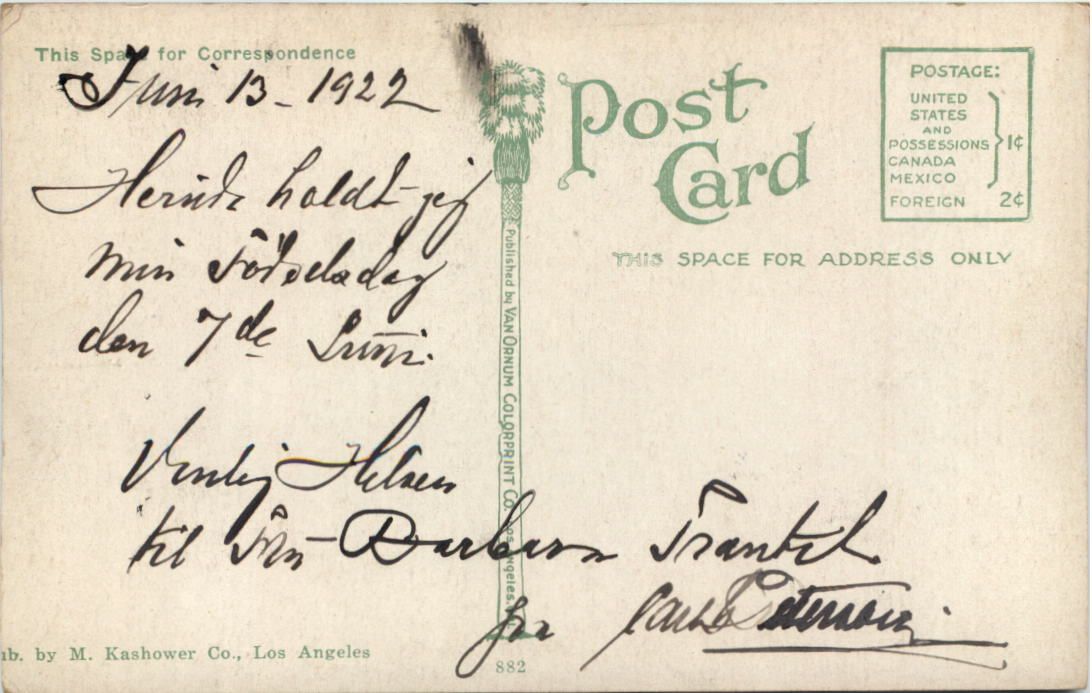 This Space for Correspondence
Juni 13 - 1922
Herinde holdt jeg
min Födselsdag
den 7de Juni.
Venlig Hilsen
til Fru Barbara
fra
Post
Card
POSTAGE:
UNITED
STATES
AND
POSSESSIONS
CANADA
MEXICO
1¢
FOREIGN 2¢
THIS SPACE FOR ADDRESS ONLY
Published by VAN ORNUM COLORPRINT CO. Los Angeles.
ub. by M. Kashower Co., Los Angeles
882